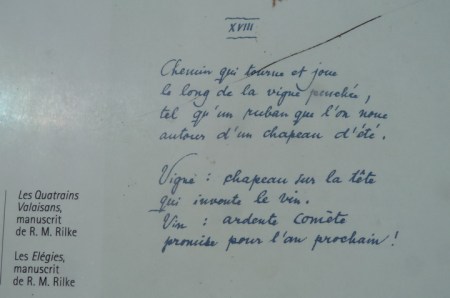 XVIII
Chemin qui tourne et joue
le long de la vigne penchée,
tel qu'un ruban que l'on noue
autour d'un chapeau d'été.
Vigne : chapeau sur la tête
qui invente le vin.
Vin : ardente comète
promise pour l'an prochain !
Les Quatrains
Valaisans,
manuscrit
de R. M. Rilke
Les Elégies,
manuscrit
de R. M. Rilke